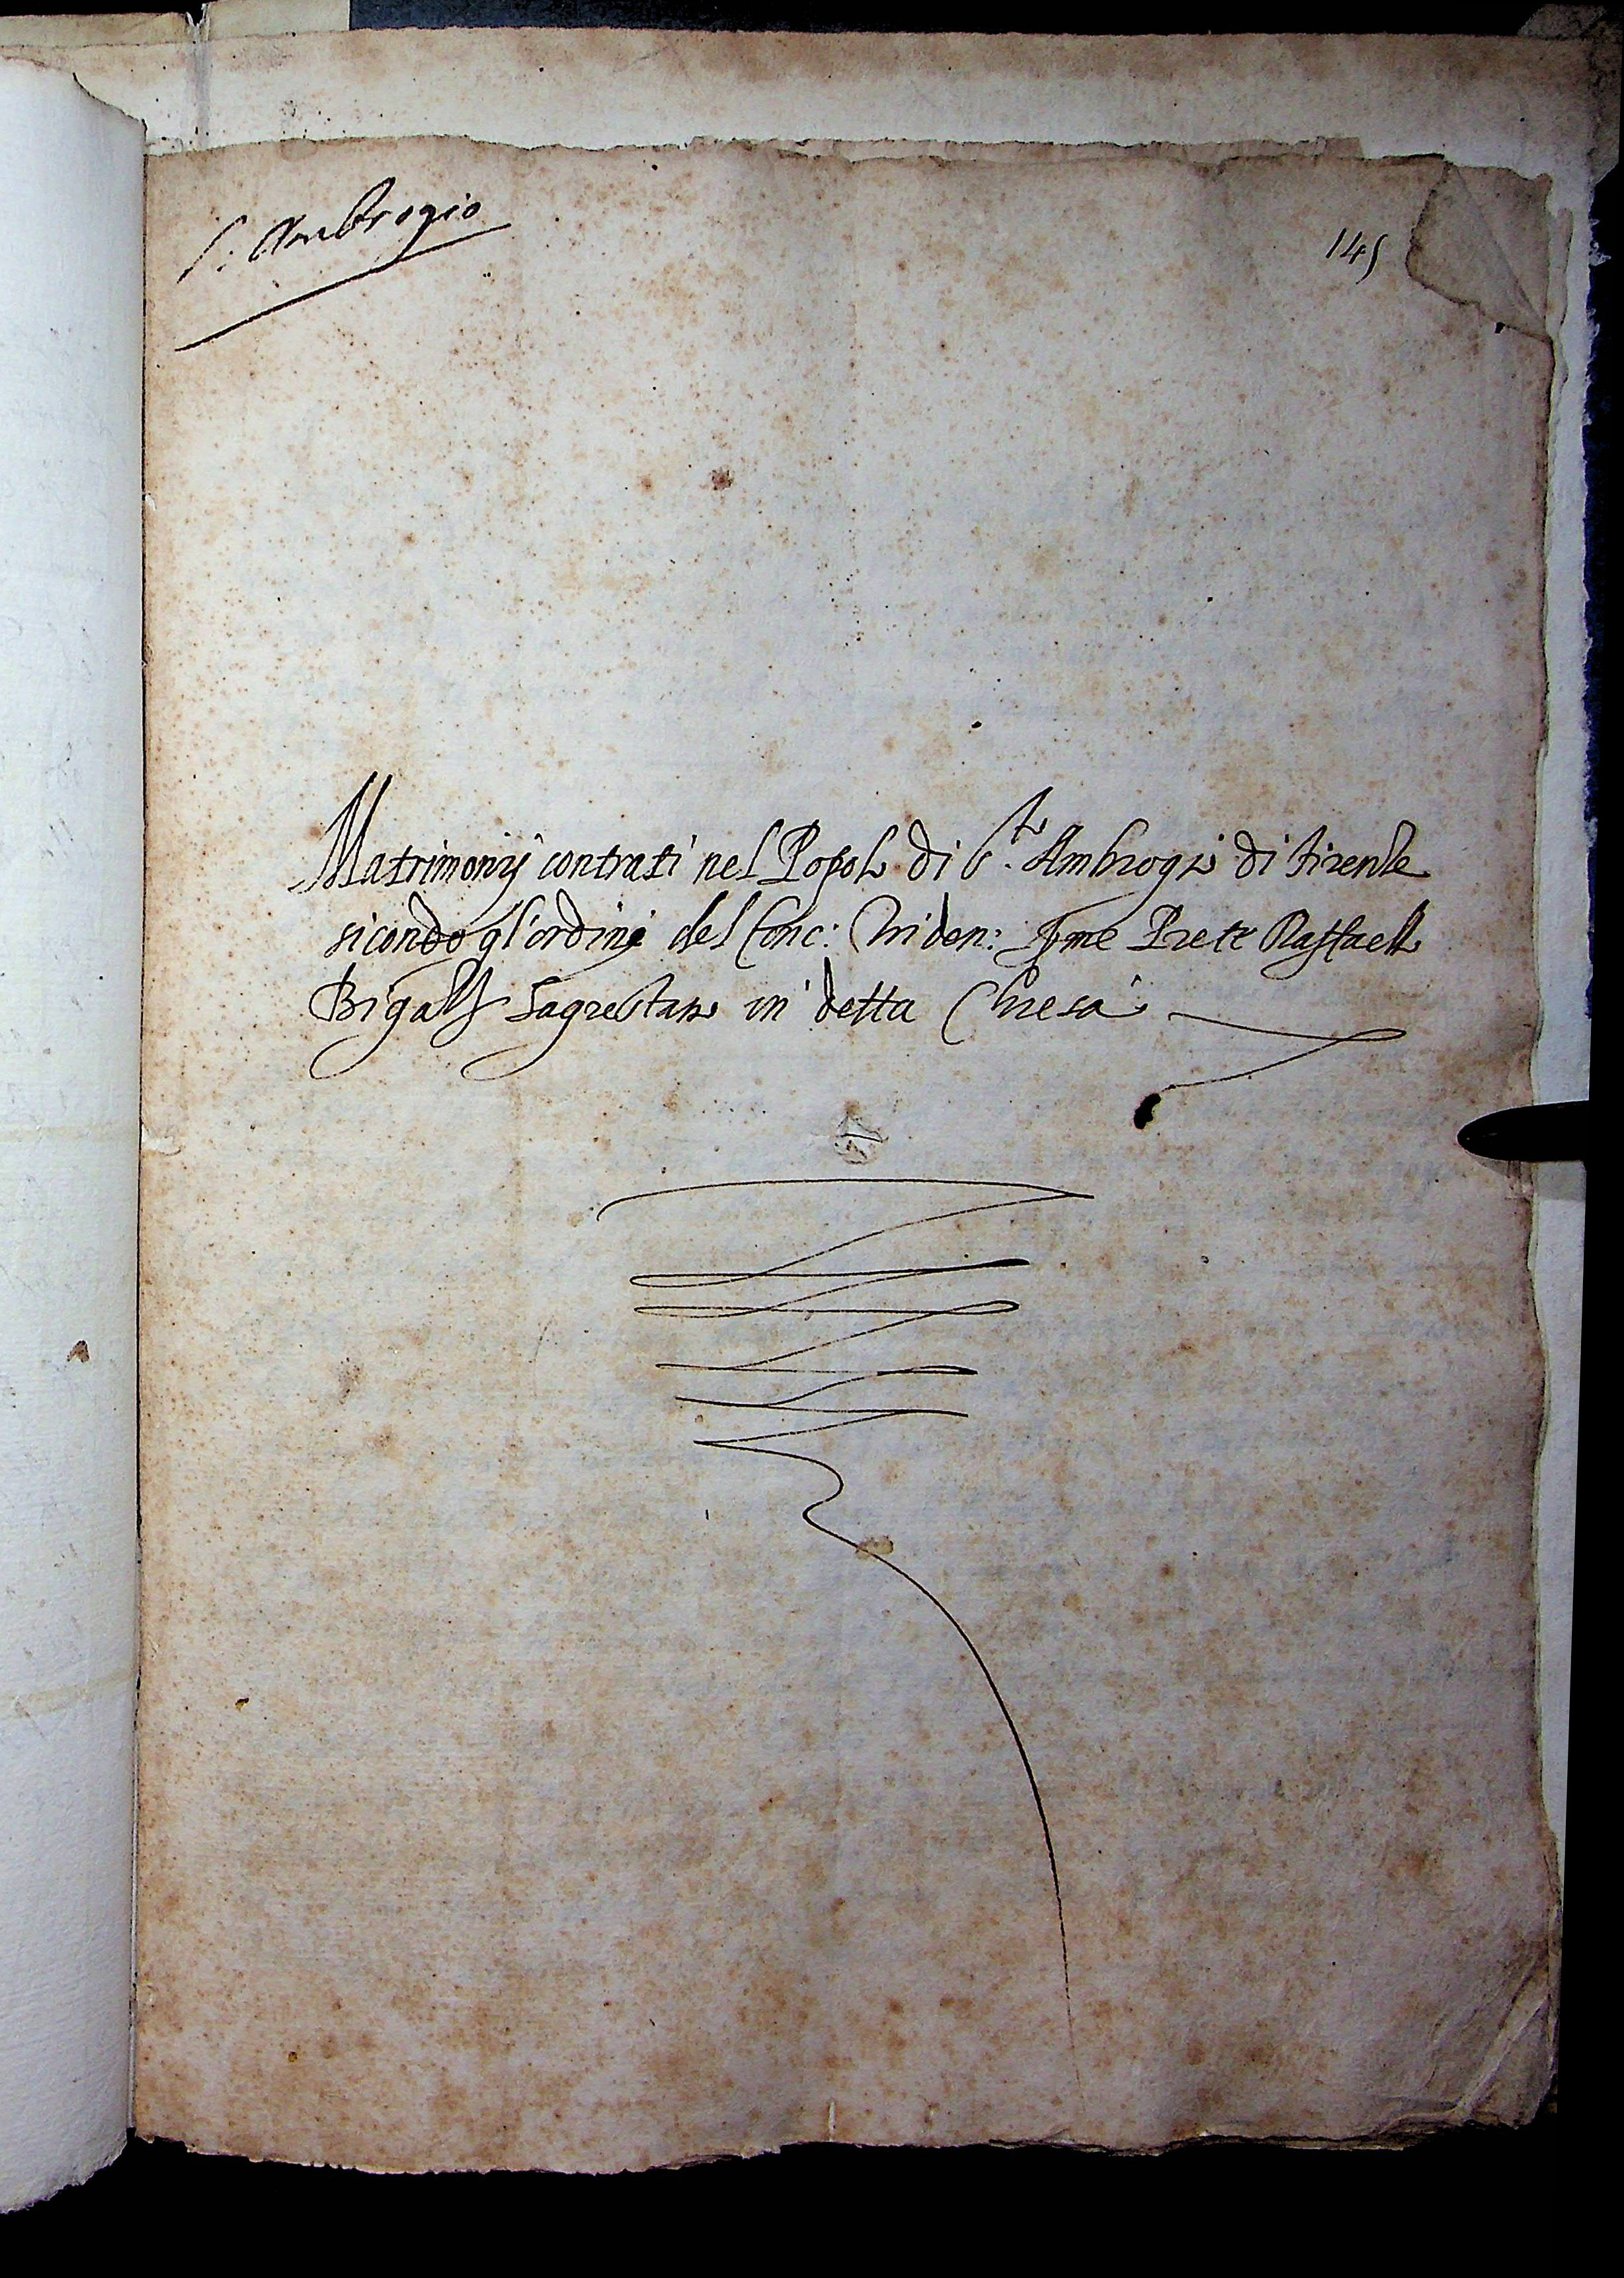 S: Ambrogio
145
Matrimonij contrati nel Popolo di S.to Ambrogio di firenze
sicondo gl'ordini del Conc: Triden: Prete Raffaello
Bigalli Sagrestano in detta Chiesa